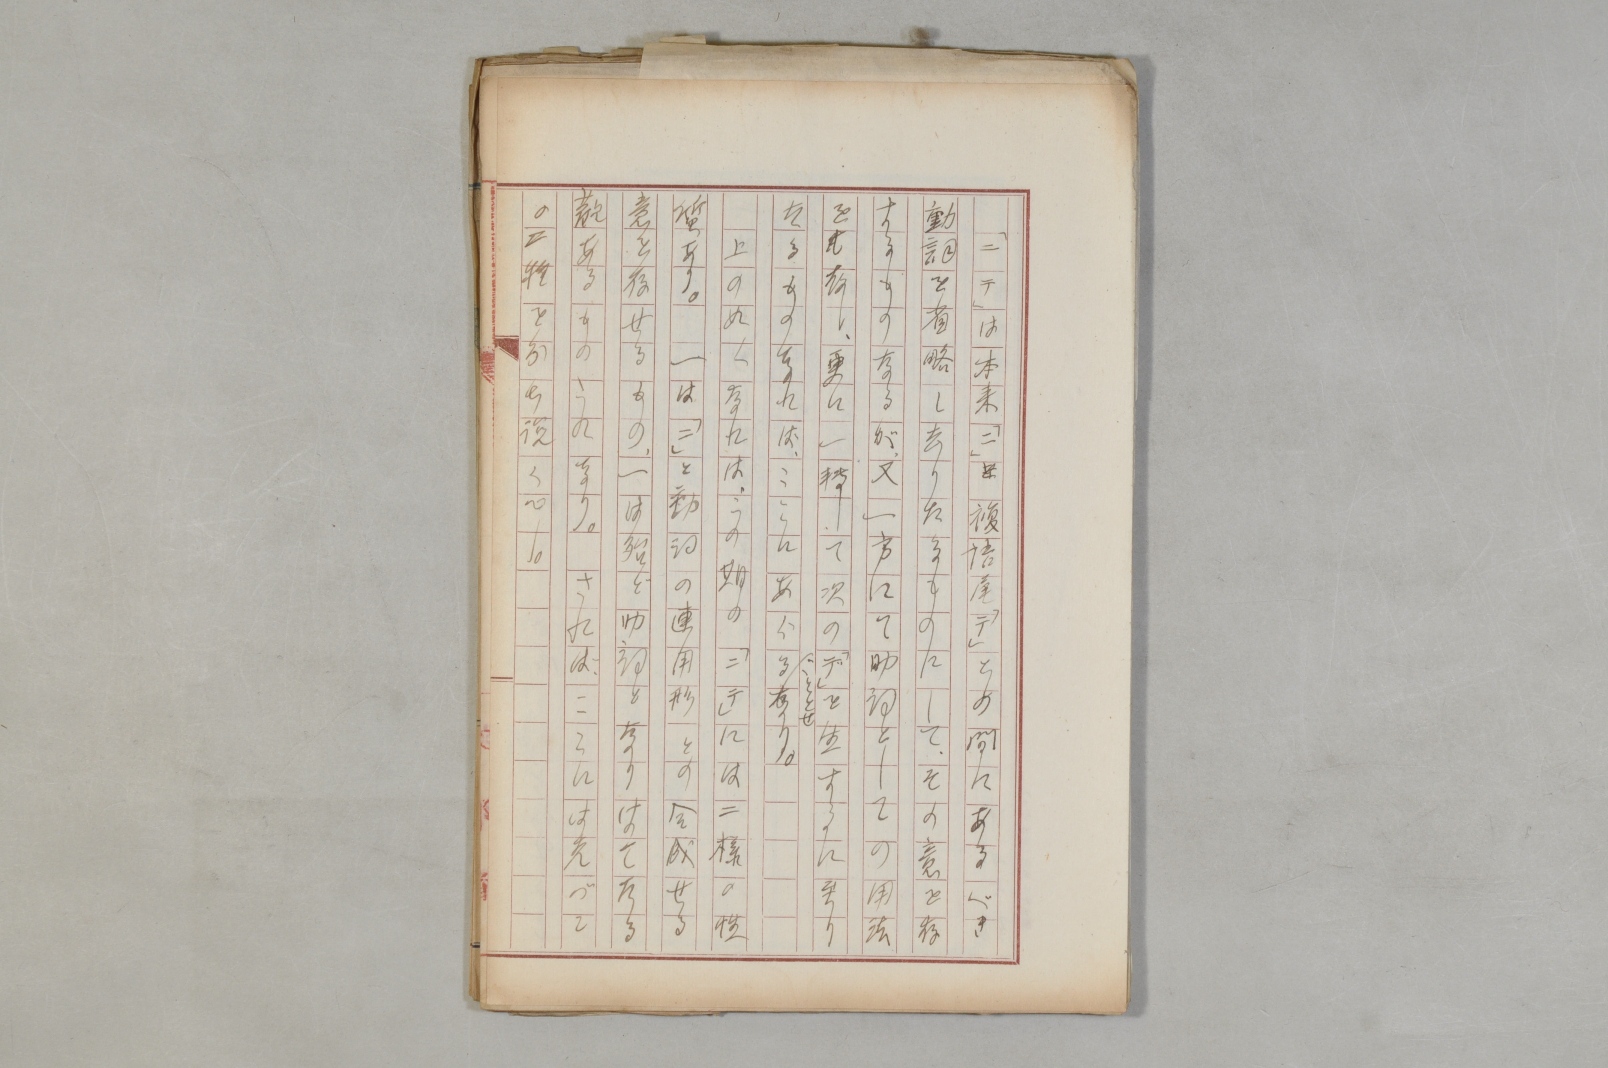 「ニテ」は本来「ニ」と複語尾「テ」との間にあるべき
動詞を省略し去りたるものにして、その意を存
するものなるが、又一方にて助詞としての用法
をも有し、更に一轉して次の「デ」を生ずるに至り
たるものなれば、ここにあぐることとせり。
上の如くなれば、この期の「ニテ」には二樣の性
質あり。一は「ニ」と動詞の連用形との合成せる
意を存せるもの、一は殆ど助詞となりはてたる
觀あるものこれなり。されば、ここには先づこ
の二種を分ち説くべし。